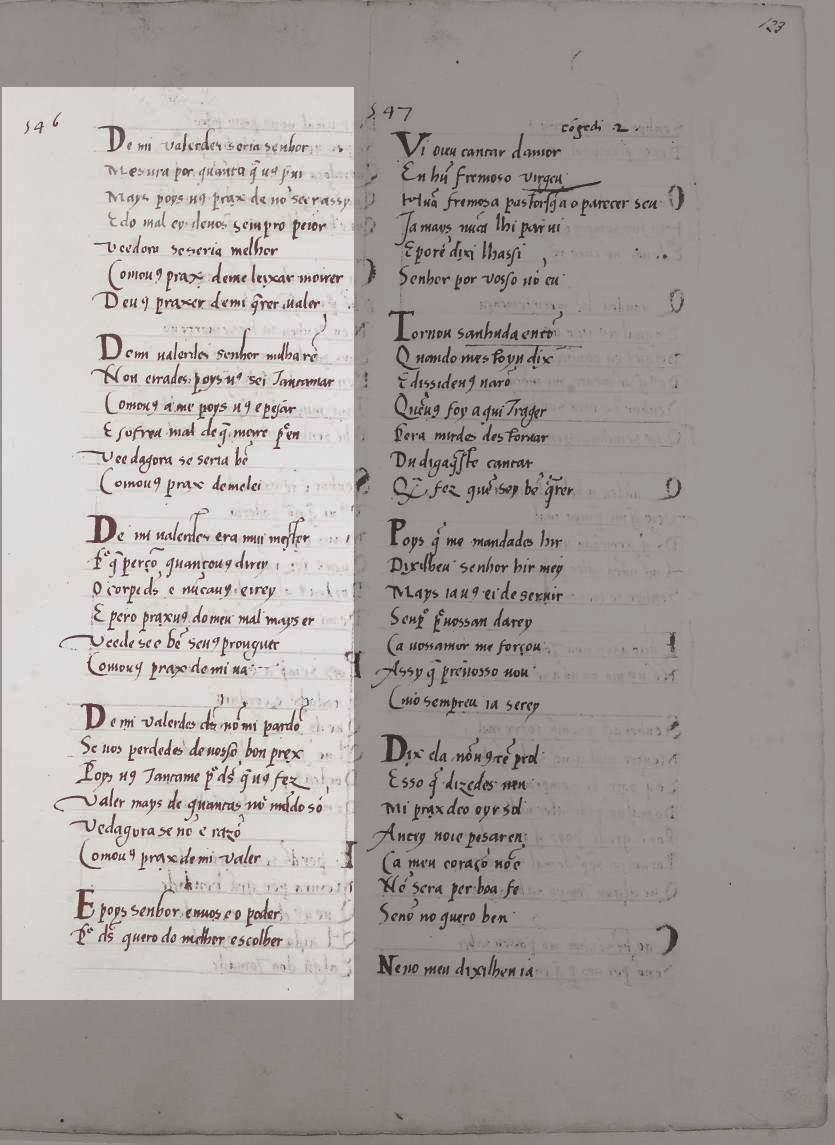 123
546
De mi valerdes seria senhor
Mesura por quanta q̃ uꝯ servi
Mays poys uꝯ praz de nõ seer assy
E do mal ey de uos sempro peior
Veedora se seria melhor
Comouꝯ praz deme leixar moirer
De uꝯ prazer de mi q̃rer ualer
De mi ualerdes senhor nulha rẽ
Non errades poys uꝯ sei
Comouꝯ a me poys uꝯ e pesar
E sofreu mal de q̃ moire
Veedagora se seria bẽ
Comouꝯ praz demelei
De mi ualerdes era mui mester
q̃ perço quantouꝯ direy
O corpe ds̃ e nũcauꝯ eirey
E pero prazuꝯ do meu mal mayser
Veede see bẽ seuꝯ prouguer
Comouꝯ praz de mi ua
De mi valerdes ds̃ nõ mi pardõ
Se uos perdedes deuosso bon prez
Poys uꝯ tantame pꝰ ds̃ q̃ uꝯ fez
Valer mays de quantas nõ mũdo sõ
Vedagora se nõ e razõ
Comouꝯ praz de mi valer
E poys senhor enuos e o poder
ds̃ quero do melhor escolher
547
cõgedi 2
Vi oieu cantar damor
En hũ fremoso virgeu
Hũa fremosa pastor q̃ a o parecer seu
Ja mays nũca lhi par vi
E porẽ dixi lhassi
Senhor por vosso uõ eu
Tornou sanhuda entõ
Quando mestoyu dix
E disside uꝯ narõ
Quẽ uꝯ foy aqui trager
Pera mirdes destoruar
Du digaq̃ste cantar
fez quẽ sey bẽ q̃rer
Poys q̃ me mandades hir
Dixilheu senhor hir mey
Mays ia uꝯ ei de seruir
Senpꝰ pꝰ uossan darey
Ca uossamor me forçou
Assy q̃ pre uosso uou
Cuio sempreu ia serey
Dix ela nõ uꝯ tẽ prol
Esso q̃ dizedes nen
Mi praz deo oyr sol
Antey noie pesar en
Ca meu coraçõ nõ e
Nẽ sera per boa fe
Senõ no quero ben
Neno meu dixilhen ia